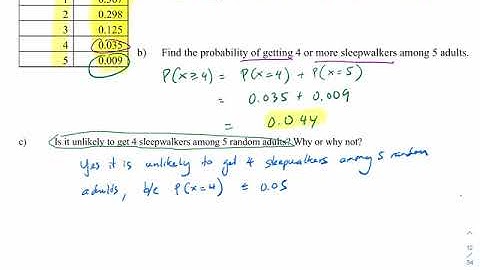 1 0.367
2 0.298
3 0.125
4 0.035
5 0.009
b) Find the probability of getting 4 or more sleepwalkers among 5 adults.
P(x≥4) = P(x=4) + P(x=5)
= 0.035 + 0.009
= 0.044
c) Is it unlikely to get 4 sleepwalkers among 5 random adults? Why or why not?
Yes it is unlikely to get 4 sleepwalkers among 5 random
adults, b/c P(x=4) ≤ 0.05
12
34